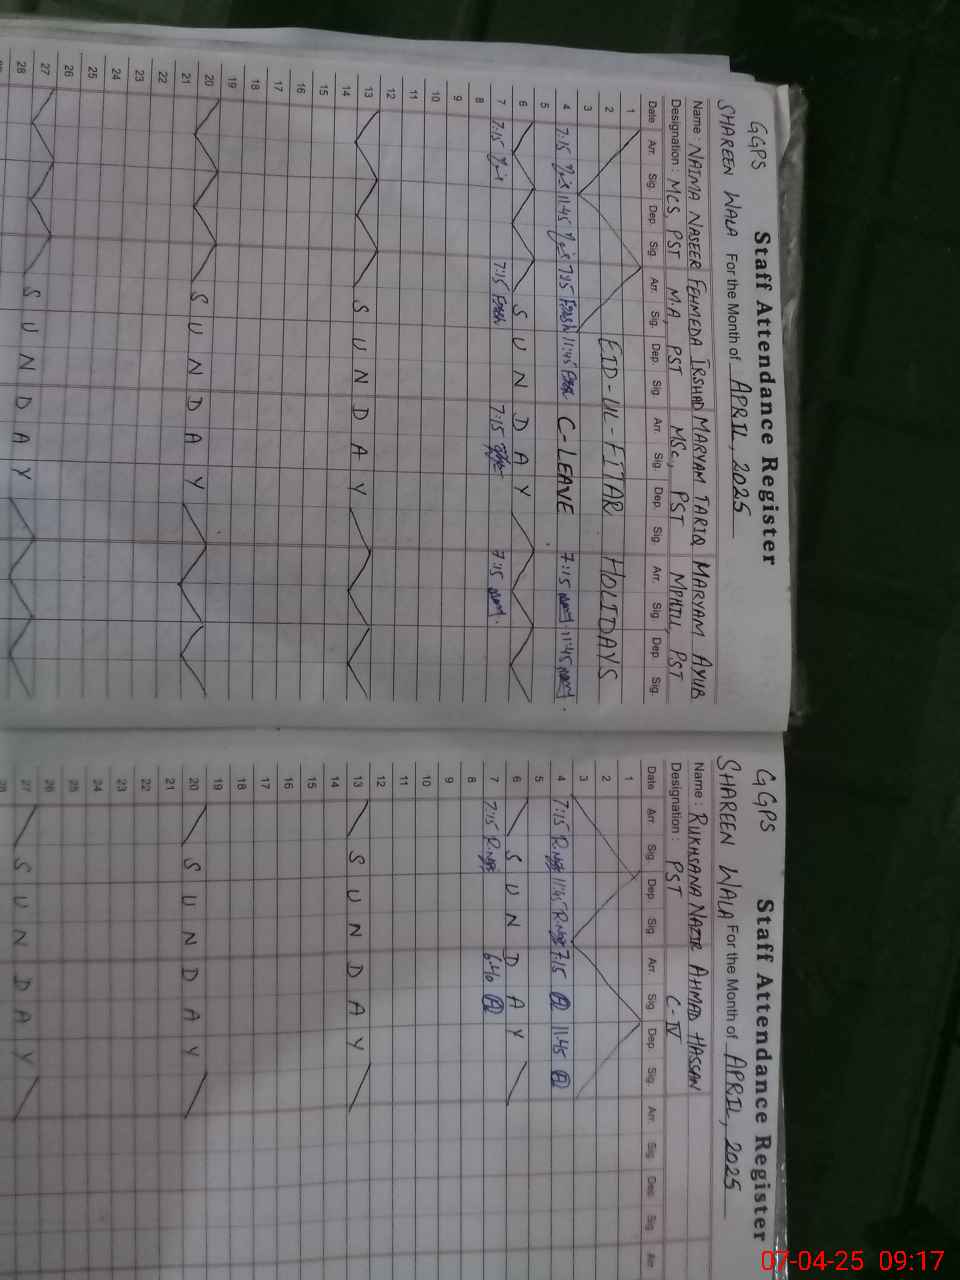 Staff Attendance Register
GGPS
SHAREEN WALA For the Month of APRIL, 2025
Name : NAIMA NASEER FEHMEDA IRSHAD MARYAM TARIQ MARYAM AYUB
Designation : MCS, PST M.A, PST MSc, PST MPHILL, PST
Date Arr. Sig. Dep. Sig. Arr. Sig. Dep. Sig. Arr. Sig. Dep. Sig. Arr. Sig. Dep. Sig.
1
2 EID-UL-FITAR HOLIDAYS
3
4 7:15 11:45 7:15 11:45 C-LEAVE 7:15 11:45
5
6 SUNDAY
7 7:15 7:15 7:15 7:15
8
9
10
11
12
13 SUNDAY
14
15
16
17
18
19
20 SUNDAY
21
22
23
24
25
26
27 SUNDAY
28
Staff Attendance Register
GGPS
SHAREEN WALA For the Month of APRIL, 2025
Name : RUKHSANA NAZIR AHMAD HASSAN
Designation : PST C-IV
Date Arr. Sig. Dep. Sig. Arr. Sig. Dep. Sig. Arr. Sig. Dep. Sig. Arr
1
2
3
4 7:15 11:45 7:15 11:45
5
6 SUNDAY
7 7:15 6:40
8
9
10
11
12
13 SUNDAY
14
15
16
17
18
19
20 SUNDAY
21
22
23
24
25
26
27 SUNDAY
28
07-04-25 09:17